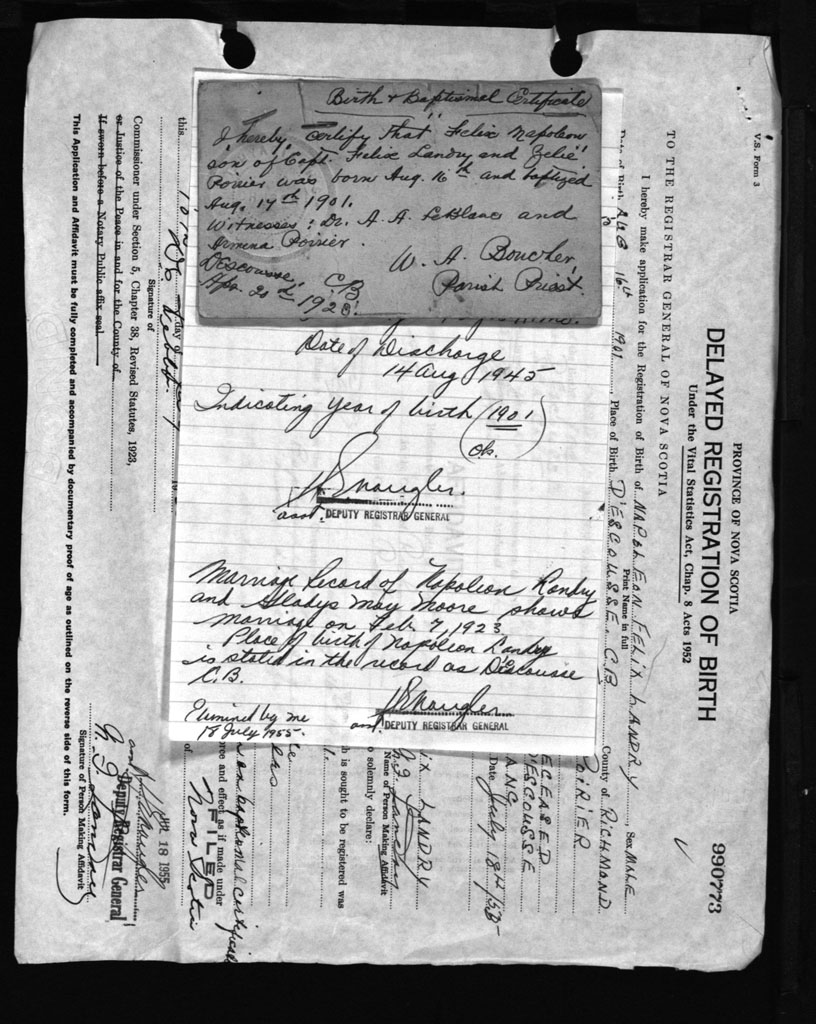 Birth & Baptismal Certificate
I hereby certify that Felix Napoleon
son of Capt. Felix Landry and Zelie
Poirier was born Aug. 16th and baptized
Aug. 17th 1901.
Witnesses: Dr. A. A. LeBlanc and
Armena Poirier.
W. A. Boucher,
Parish Priest.
Descousse, C.B.
1923.
Date of Discharge
14 Aug 1945
Indicating year of birth (1901)
ok.
asst. DEPUTY REGISTRAR GENERAL
Marriage Record of Napoleon Landry
and Gladys May Moore shows
marriage on Feb 7, 1923
Place of birth of Napoleon Landry
is stated in the record as Descousse
C.B.
asst. DEPUTY REGISTRAR GENERAL
by me
18 July 1955.
V.S. Form 3
PROVINCE OF NOVA SCOTIA
DELAYED REGISTRATION OF BIRTH
990773
Under the Vital Statistics Act, Chap. 8 Acts 1952
TO THE REGISTRAR GENERAL OF NOVA SCOTIA
I hereby make application for the Registration of Birth of NAPOLEON FELIX LANDRY, Sex MALE
Print Name in full
Date of Birth AUG 16th 1901, Place of Birth D'ESCOUSSE. C.B. County of RICHMOND
POIRIER
DECEASED
DESCOUSSE
Date July 18th/55
LANDRY
Name of Person Making Affidavit
o solemnly declare:
h is sought to be registered was
baptismal certificate
rce and effect as if made under
FILED
Nova Scotia
this
day of
Signature of
Commissioner under Section 5, Chapter 38, Revised Statutes, 1923,
or Justice of the Peace in and for the County of
If sworn before a Notary Public affix seal.
18 1955
asst
Deputy Registrar General
Signature of Person Making Affidavit
This Application and Affidavit must be fully completed and accompanied by documentary proof of age as outlined on the reverse side of this form.